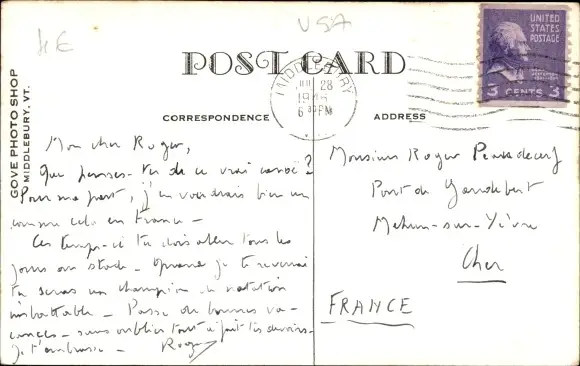 HE
USA
POST CARD
UNITED
STATES
POSTAGE
3 CENTS 3
MIDDLEBURY
JUL 28
6 30 PM
GOVE PHOTO SHOP
MIDDLEBURY, VT.
CORRESPONDENCE
ADDRESS
Mon cher Roger,
Que penses-tu de ce vrai canoë ?
Pour ma part, j'en voudrais bien un
comme cela en France -
Ces temps-ci tu dois aller tous les
jours au stade - Quand je te reverrai
tu seras un champion de natation
imbattable - Passe de bonnes va-
cances - sans oublier tout à fait tes devoirs -
je t'embrasse - Roger
Monsieur Roger
Pont de
Mehun-sur-Yèvre
Cher
FRANCE